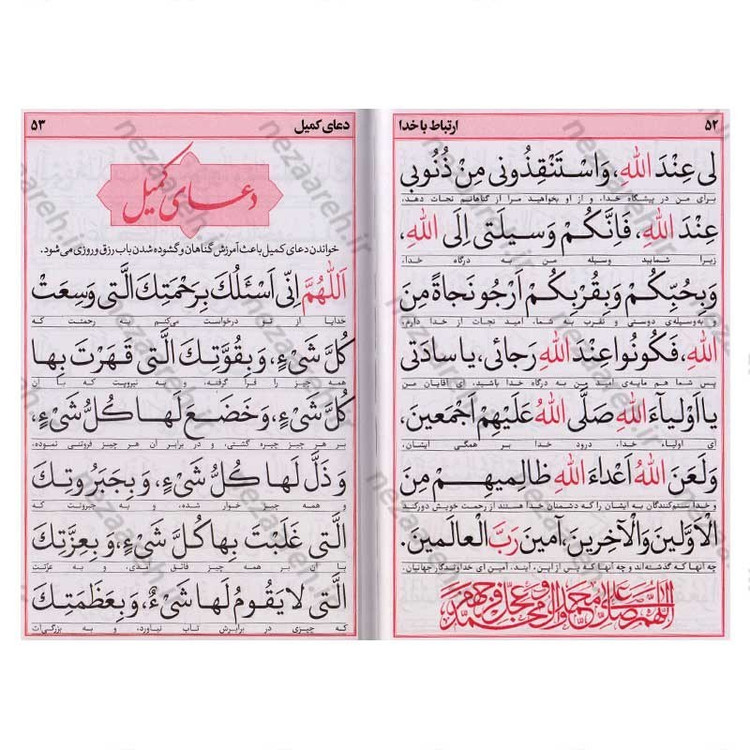 ۵۲
ارتباط با خدا
لی عِنْدَ اللهِ، وَاسْتَنْقِذُونی مِنْ ذُنُوبی
برای من در پیشگاه خدا، و از او بخواهید مرا از گناهانم نجات دهد،
عِنْدَ اللهِ، فَاِنَّكُمْ وَسیلَتی اِلَی اللهِ،
زیرا شمایید وسیله من به درگاه خدا،
وَبِحُبِّكُمْ وَبِقُرْبِكُمْ اَرْجُو نَجاةً مِنَ
و به‌وسیله‌ی دوستی و تقرب به شما، امید نجات از خدا دارم،
اللهِ، فَكُونُوا عِنْدَ اللهِ رَجائی، یا سادَتی
پس شما هم مایه‌ی امید من به درگاه خدا باشید، ای آقایان من
یا اَوْلِیآءَ اللهِ صَلَّی اللهُ عَلَیْهِمْ اَجْمَعینَ،
ای اولیاء خدا، درود خدا بر همگی ایشان،
وَ لَعَنَ اللهُ اَعْداءَ اللهِ ظالِمیهِمْ مِنَ
و خدا ستم‌کنندگان به ایشان را که دشمنان خدا هستند از رحمت خویش دور کند
الْاَوَّلینَ وَالْآخِرینَ، آمینَ رَبَّ الْعالَمینَ.
چه آنها که گذشته‌اند و چه آنها که پس از این آیند، آمین ای خداوندگار جهانیان.
اللّهم صل علی محمد وآل محمد وعجل فرجهم
دعای کمیل
۵۳
دعای کمیل
خواندن دعای کمیل باعث آمرزش گناهان و گشوده شدن باب رزق و روزی می‌شود.
اَللّهُمَّ اِنّی اَسْئَلُكَ بِرَحْمَتِكَ الَّتی وَسِعَتْ
خدایا از تو درخواست می‌کنم به رحمتت که
كُلَّ شَیْءٍ، وَ بِقُوَّتِكَ الَّتی قَهَرْتَ بِها
همه چیز را فرا گرفته، و به نیرویت که با آن
كُلَّ شَیْءٍ، وَ خَضَعَ لَها كُلُّ شَیْءٍ،
بر هر چیز چیره گشتی، و در برابر آن هر چیز فروتنی نموده،
وَ ذَلَّ لَها كُلُّ شَیْءٍ، وَ بِجَبَرُوتِكَ
و همه چیز خوار شده، و به جبروتت که
الَّتی غَلَبْتَ بِها كُلَّ شَیْءٍ، وَ بِعِزَّتِكَ
با آن بر همه چیز فائق آمدی، و به عزتت
الَّتی لا یَقُومُ لَها شَیْءٌ، وَ بِعَظَمَتِكَ
که چیزی در برابرش تاب نیاورد، و به بزرگی‌ات
nezaareh.ir